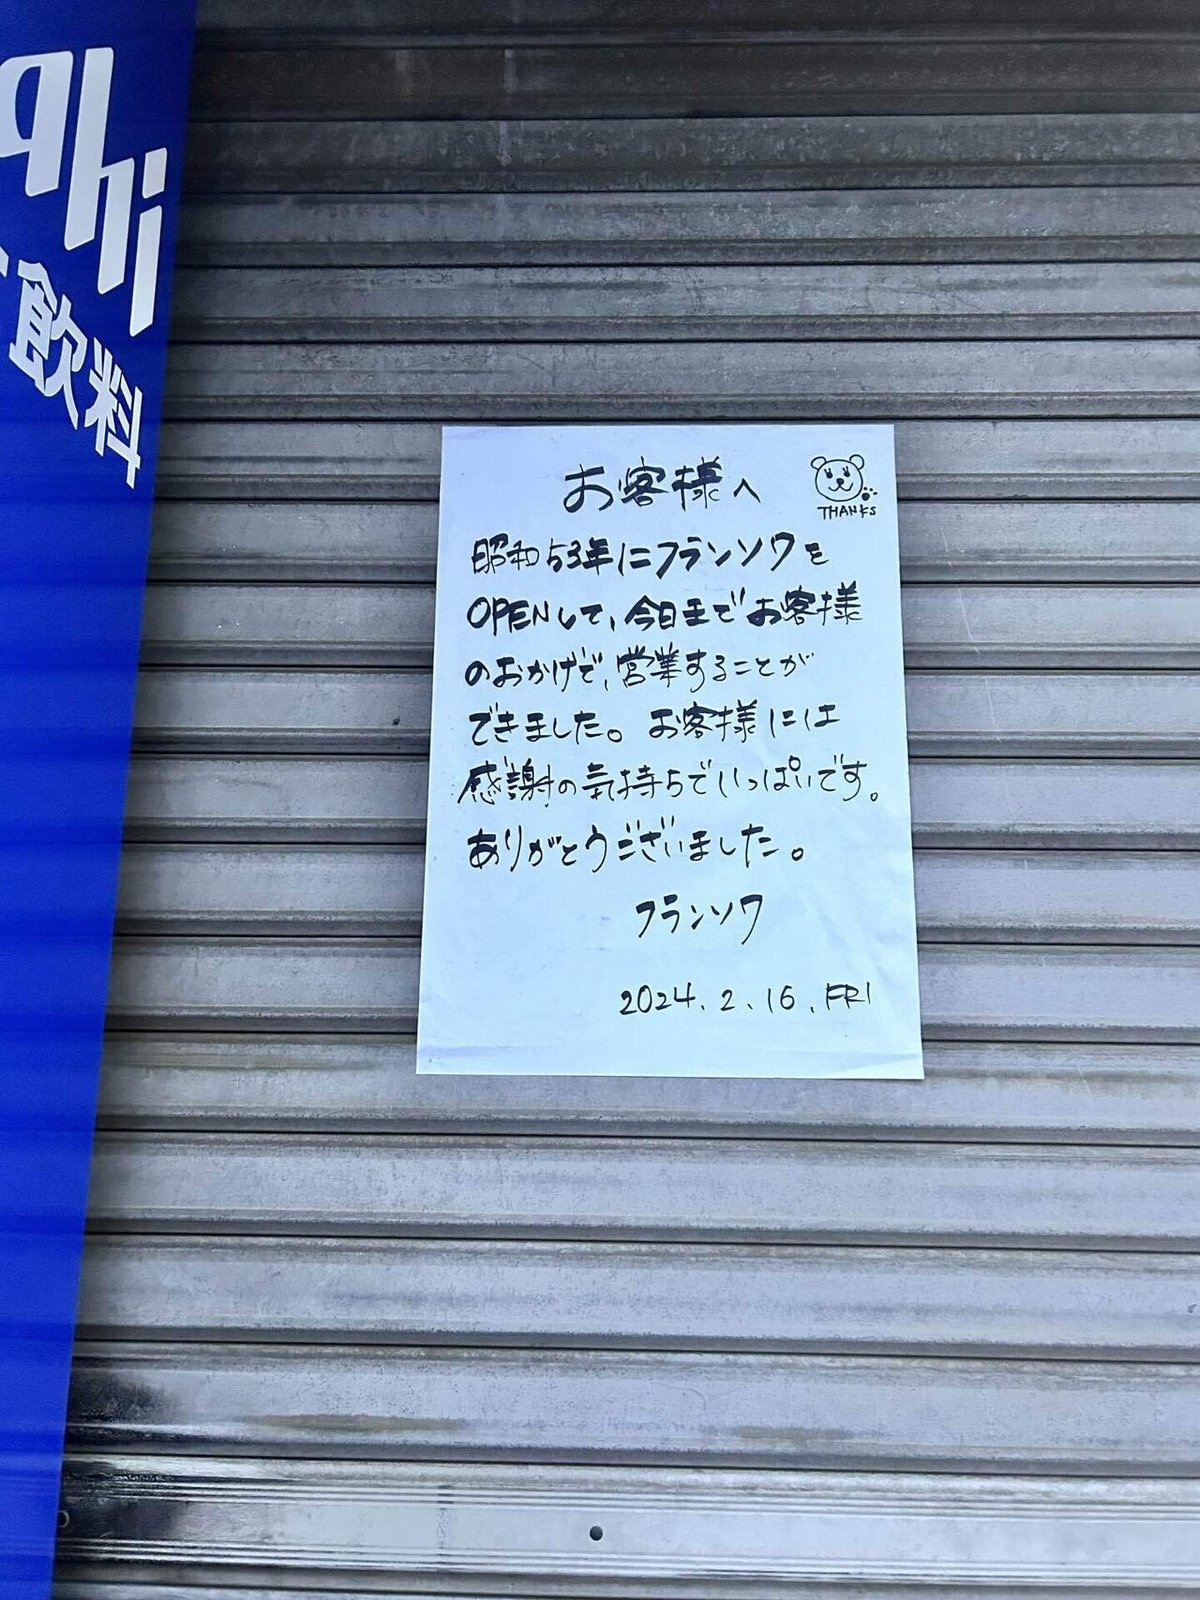 ahi
飲料
お客様へ
THANKS
昭和53年にフランソワを
OPENして、今日まで お客様
のおかげで、営業することが
できました。 お客様には
感謝の気持ちでいっぱいです。
ありがとうございました。
フランソワ
2024. 2. 16. FRI